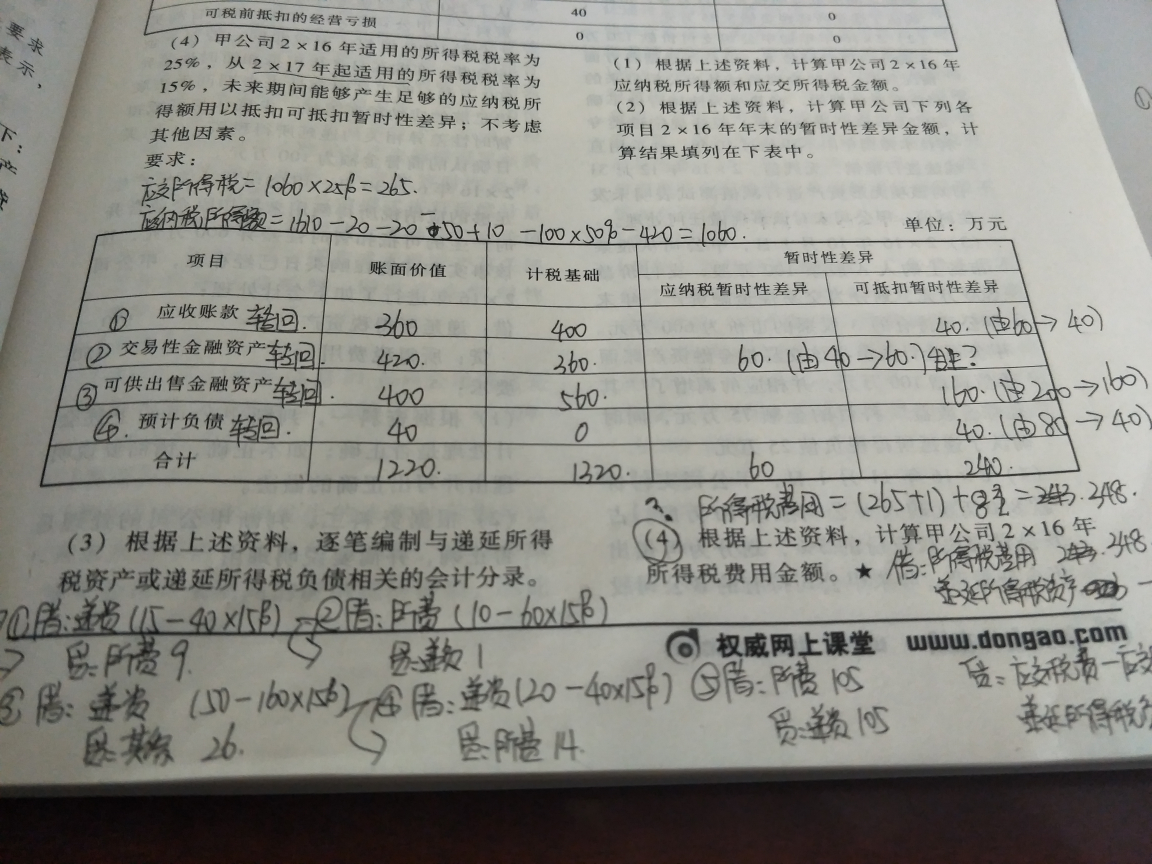 要求
表示,
下:
产
可税前抵扣的经营亏损 40 0
0 0
(4)甲公司2×16年适用的所得税税率为
25%,从2×17年起适用的所得税税率为
15%,未来期间能够产生足够的应纳税所
得额用以抵扣可抵扣暂时性差异;不考虑
其他因素。
要求:
(1)根据上述资料,计算甲公司2×16年
应纳税所得额和应交所得税金额。
(2)根据上述资料,计算甲公司下列各
项目2×16年年末的暂时性差异金额,计
算结果填列在下表中。
应交所得税=1060×25%=265.
应纳税所得额=1610-20-20-50+10-100×50%-420=1060.
单位:万元
项目 账面价值 计税基础 暂时性差异
应纳税暂时性差异 可抵扣暂时性差异
① 应收账款 转回. 360 400 40.(由60→40)
② 交易性金融资产 转回. 420. 360. 60.(由40→60.)
③ 可供出售金融资产 转回. 400 560. 160.(由200→160)
④. 预计负债 转回. 40 0 40.(由80→40)
合计 1220. 1320. 60 240.
(3)根据上述资料,逐笔编制与递延所得
税资产或递延所得税负债相关的会计分录。
所得税费用=(265+1)+ = 248.
(4)根据上述资料,计算甲公司2×16年
所得税费用金额。★
借:所得税费用 248.
递延所得税资产
①借:递资(15-40×15%)
贷:所费 9.
②借:所费(10-60×15%)
贷:递负 1
权威网上课堂 www.dongao.com
③借:递资 (50-160×15%)
贷:其综 26.
④借:递资(20-40×15%)
贷:所费 14.
⑤借:所费 105
贷:递资 105
贷:应交税费-应交
递延所得税